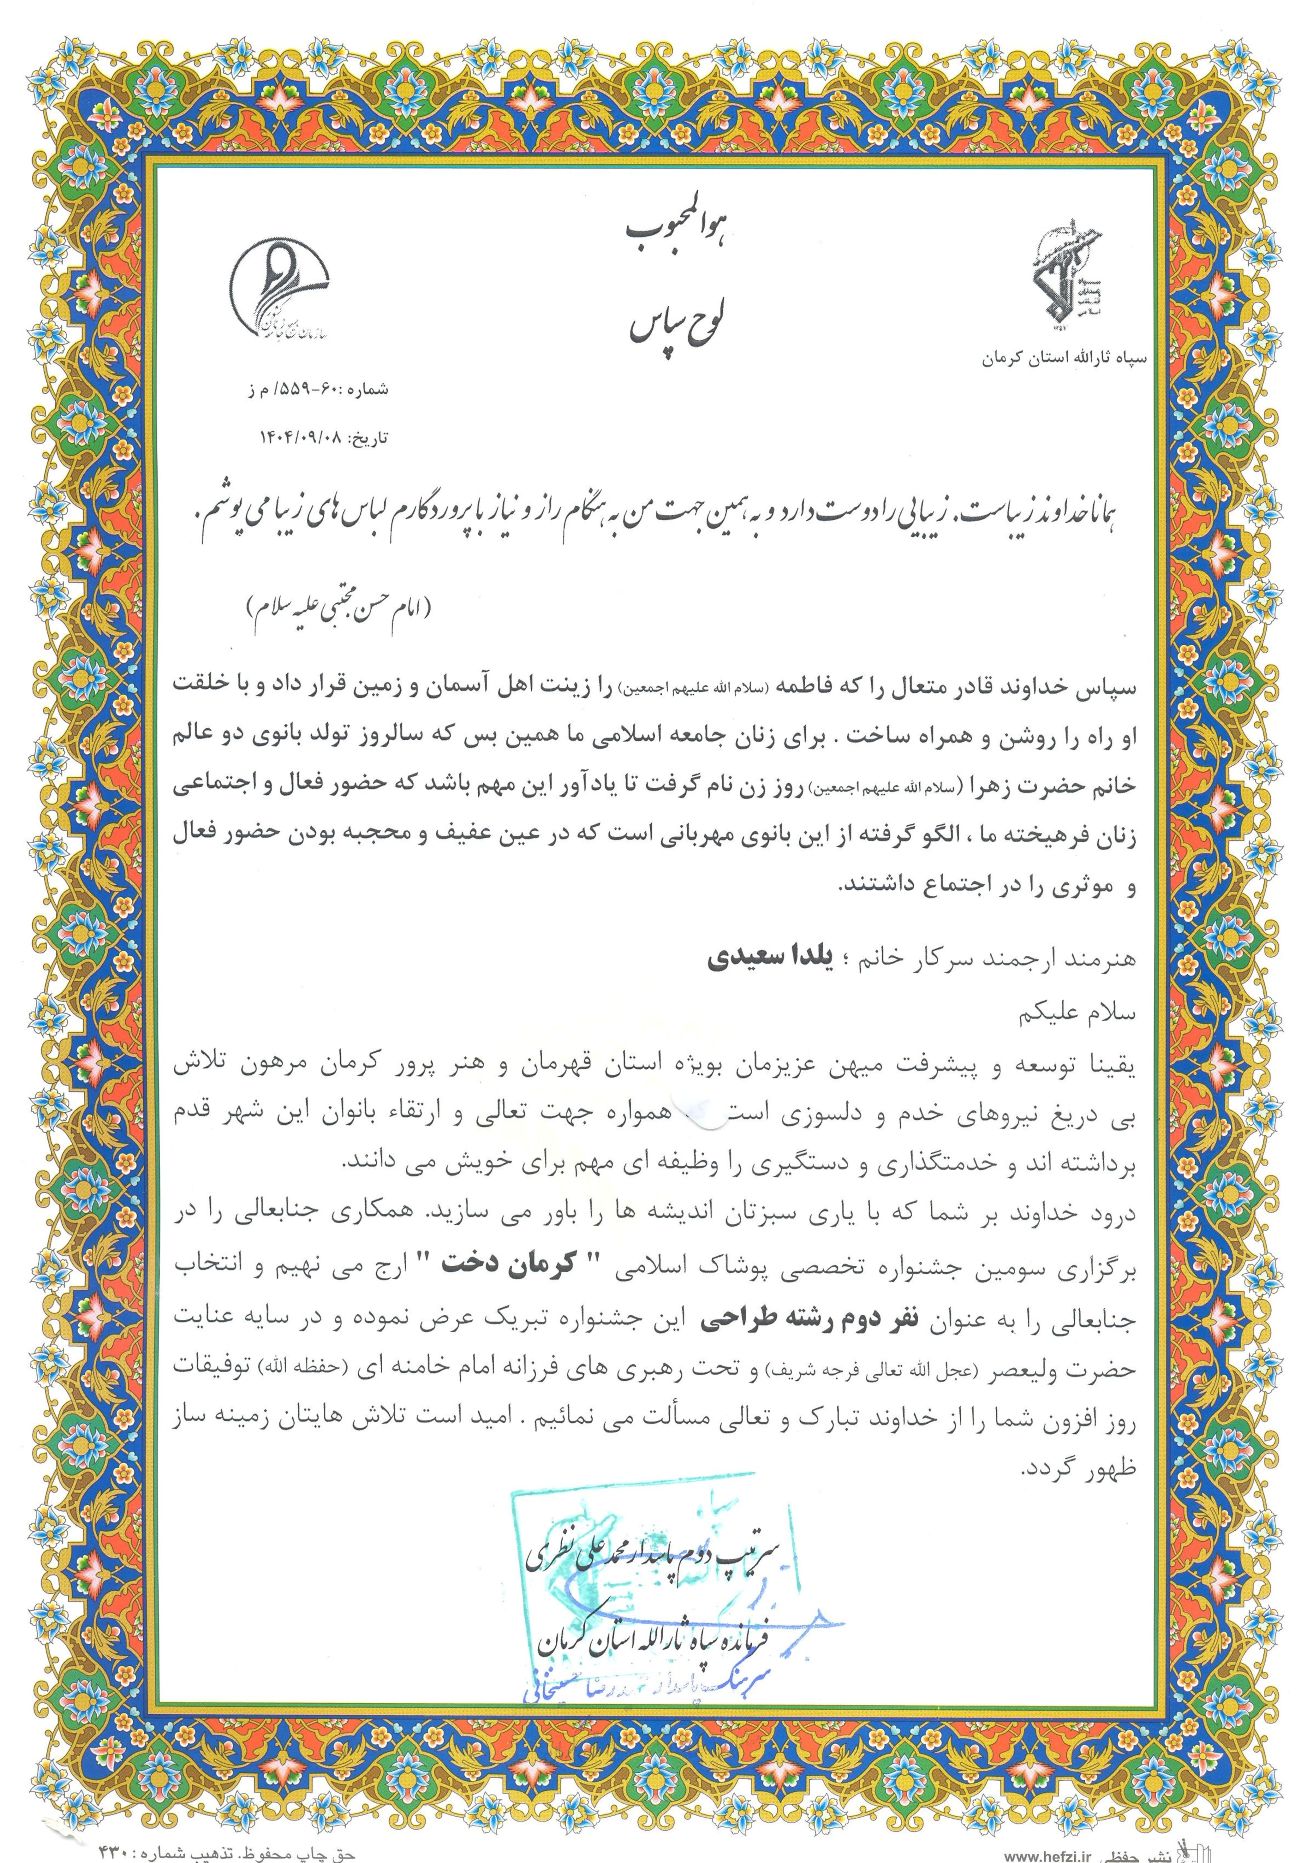 هوالمحبوب
لوح سپاس
سپاه ثارالله استان کرمان
شماره :۶۰-۵۵۹/ م ز
تاریخ: ۱۴۰۴/۰۹/۰۸
همانا خداوند زیباست. زیبایی را دوست دارد و به همین جهت من به هنگام راز و نیاز با پروردگارم لباس های زیبا می پوشم.
(امام حسن مجتبی علیه سلام)
سپاس خداوند قادر متعال را که فاطمه (سلام الله علیهم اجمعین) را زینت اهل آسمان و زمین قرار داد و با خلقت
او راه را روشن و همراه ساخت . برای زنان جامعه اسلامی ما همین بس که سالروز تولد بانوی دو عالم
خانم حضرت زهرا (سلام الله علیهم اجمعین) روز زن نام گرفت تا یادآور این مهم باشد که حضور فعال و اجتماعی
زنان فرهیخته ما ، الگو گرفته از این بانوی مهربانی است که در عین عفیف و محجبه بودن حضور فعال
و موثری را در اجتماع داشتند.
هنرمند ارجمند سرکار خانم ؛ یلدا سعیدی
سلام علیکم
یقینا توسعه و پیشرفت میهن عزیزمان بویژه استان قهرمان و هنر پرور کرمان مرهون تلاش
بی دریغ نیروهای خدم و دلسوزی است همواره جهت تعالی و ارتقاء بانوان این شهر قدم
برداشته اند و خدمتگذاری و دستگیری را وظیفه ای مهم برای خویش می دانند.
درود خداوند بر شما که با یاری سبزتان اندیشه ها را باور می سازید. همکاری جنابعالی را در
برگزاری سومین جشنواره تخصصی پوشاک اسلامی " کرمان دخت " ارج می نهیم و انتخاب
جنابعالی را به عنوان نفر دوم رشته طراحی این جشنواره تبریک عرض نموده و در سایه عنایت
حضرت ولیعصر (عجل الله تعالی فرجه شریف) و تحت رهبری های فرزانه امام خامنه ای (حفظه الله) توفیقات
روز افزون شما را از خداوند تبارک و تعالی مسألت می نمائیم . امید است تلاش هایتان زمینه ساز
ظهور گردد.
سرتیپ دوم پاسدار محمد علی نظری
فرمانده سپاه ثارالله استان کرمان
سرهنگ پاسدار
حق چاپ محفوظ. تذهیب شماره : ۴۳۰
نشر حفظی www.hefzi.ir